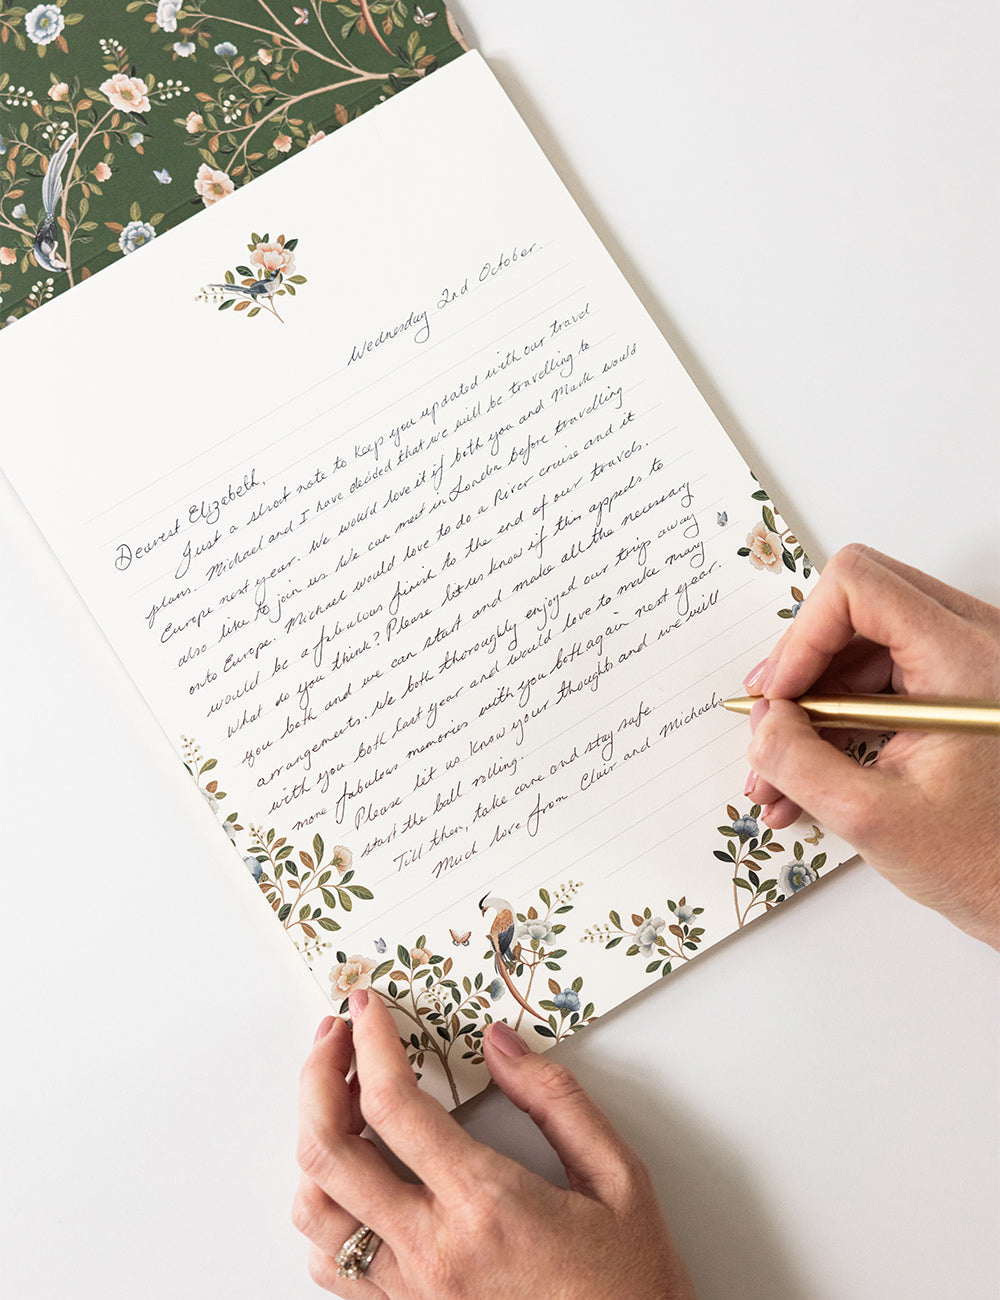 Wednesday 2nd October.
Dearest Elizabeth,
Just a short note to keep you updated with our travel
plans. Michael and I have decided that we will be travelling to
Europe next year. We would love it if both you and Mark would
also like to join us. We can meet in London before travelling
onto Europe. Michael would love to do a River cruise and it
would be a fabulous finish to the end of our travels.
What do you think? Please let us know if this appeals to
you both and we can start and make all the necessary
arrangements. We both thoroughly enjoyed our trip away
with you both last year and would love to make many
more fabulous memories with you both again next year.
Please let us know your thoughts and we will
start the ball rolling.
Till then, take care and stay safe.
Much love from Clair and Michael.